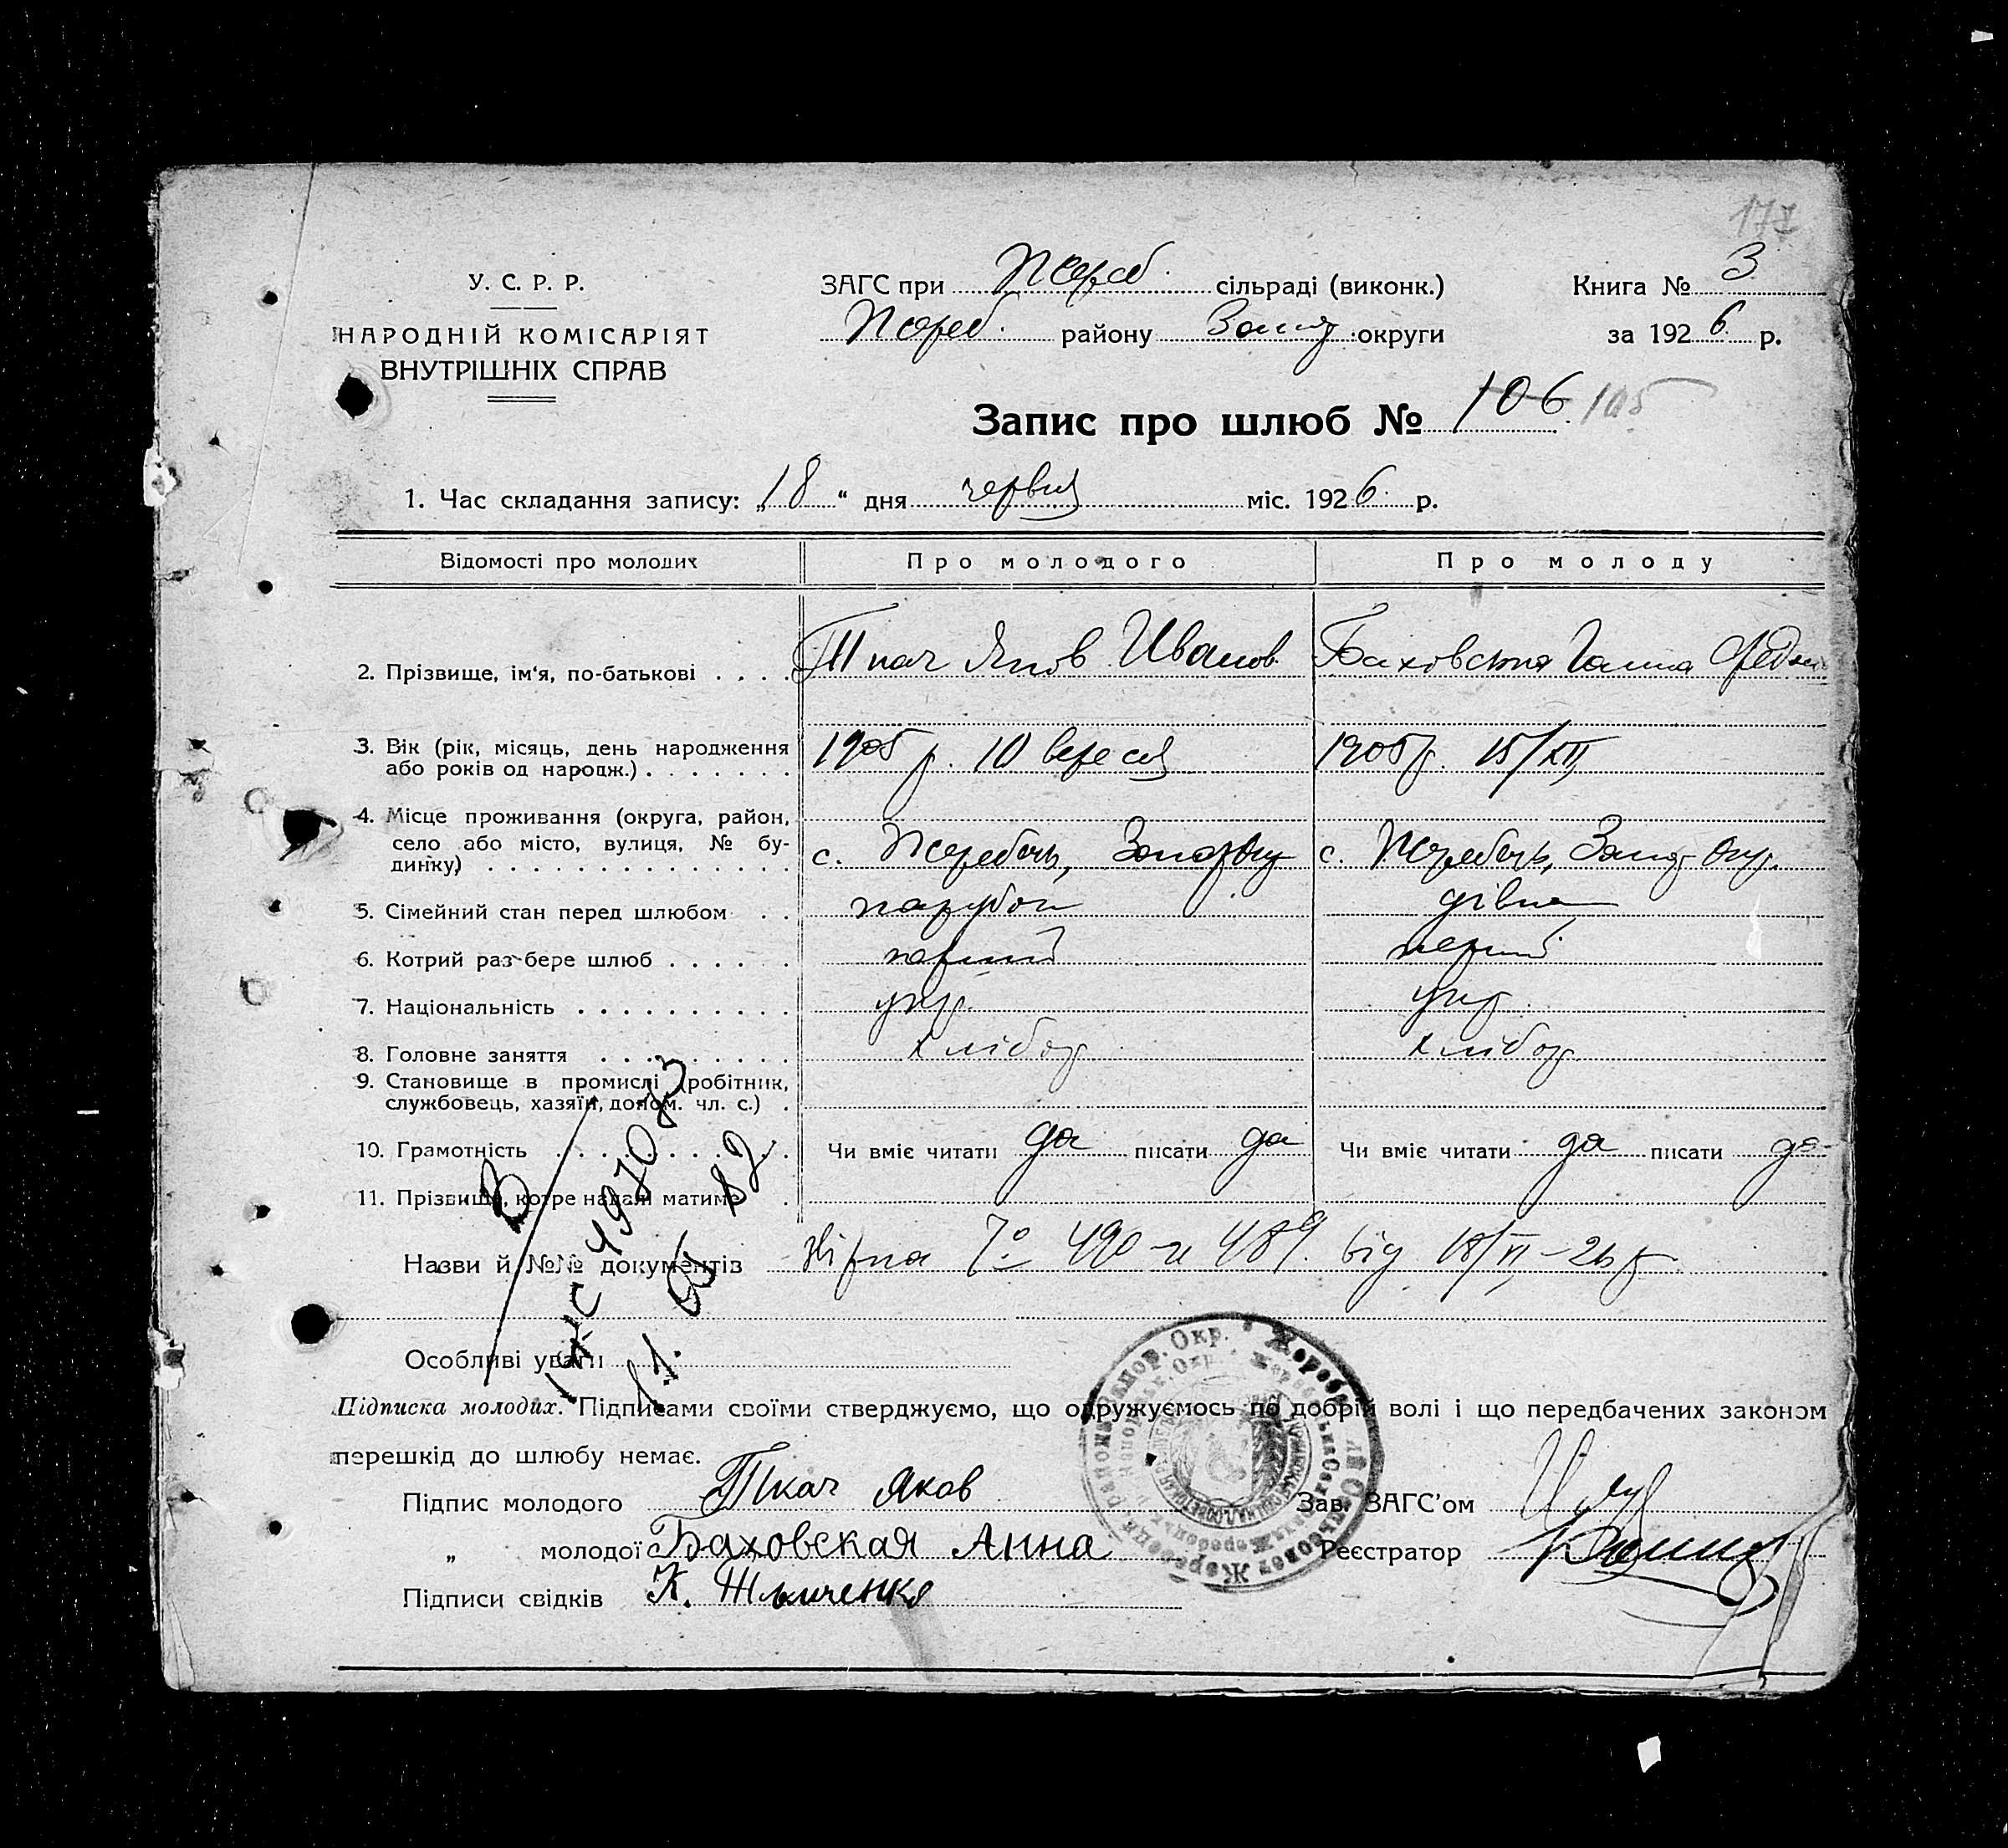 177
У. С. Р. Р.
НАРОДНІЙ КОМІСАРІЯТ
ВНУТРІШНІХ СПРАВ
ЗАГС при Жереб. сільраді (виконк.)
Жереб. району Запор. округи
Книга № 3
за 1926 р.
Запис про шлюб № 106 105
1. Час складання запису: „18“ дня червня міс. 1926 р.
Відомості про молодих Про молодого Про молоду
2. Прізвище, ім'я, по-батькові . . . . Ткач Яков Иванов. Баховська Ганна Федор
3. Вік (рік, місяць, день народження
або років од нарощж.) . . . . . . . 1905 р. 10 вересня 1905 р. 15/XII
4. Місце проживання (округа, район,
село або місто, вулиця, № бу-
динку) . . . . . . . . . . . . . . с. Жеребець, Запор Окр с. Жеребець, Запор Окр.
5. Сімейний стан перед шлюбом . . парубок дівка
6. Котрий раз бере шлюб . . . . . . перший перший
7. Національність . . . . . . . . . . укр. укр.
8. Головне заняття . . . . . . . . . хлібор хлібор
9. Становище в промислі (робітник,
службовець, хазяїн, допом. чл. с.) .
10. Грамотність . . . . . . . . . . . Чи вміє читати да писати да Чи вміє читати да писати да
11. Прізвище, котре надалі матиме .
Назви й №№ документів 490 и 489. від 18/VI-26 р.
Особливі уваги
Підписка молодих. Підписами своїми стверджуємо, що одружуємось по добрій волі і що передбачених законом
перешкід до шлюбу немає.
Підпис молодого Ткач Яков
Зав. ЗАГС'ом
„ молодої Баховская Анна
Реєстратор
Підписи свідків К.